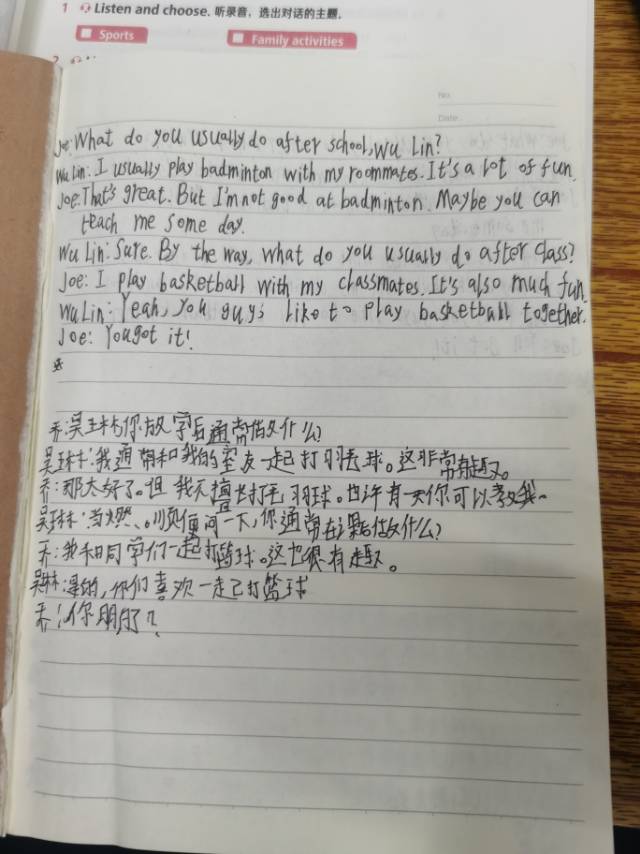 1 Listen and choose. 听录音，选出对话的主题.
Sports Family activities
No:
Date:
Joe: What do you usually do after school, Wu Lin?
Wu Lin: I usually play badminton with my roommates. It's a lot of fun.
Joe: That's great. But I'm not good at badminton. Maybe you can
teach me some day.
Wu Lin: Sure. By the way, what do you usually do after class?
Joe: I play basketball with my classmates. It's also much fun.
Wu Lin: Yeah, you guys like to play basketball together.
Joe: You got it!
乔:吴琳,你放学后通常做什么?
吴琳:我通常和我的室友一起打羽毛球。这非常有趣。
乔:那太好了。但我不擅长打毛羽球。也许有一天你可以教我。
吴琳:当燃、。顺便问一下,你通常在课后做什么?
乔:我和同学们一起打篮球。这也很有趣。
吴琳:是的,你们喜欢一起打篮球
乔:你明了?